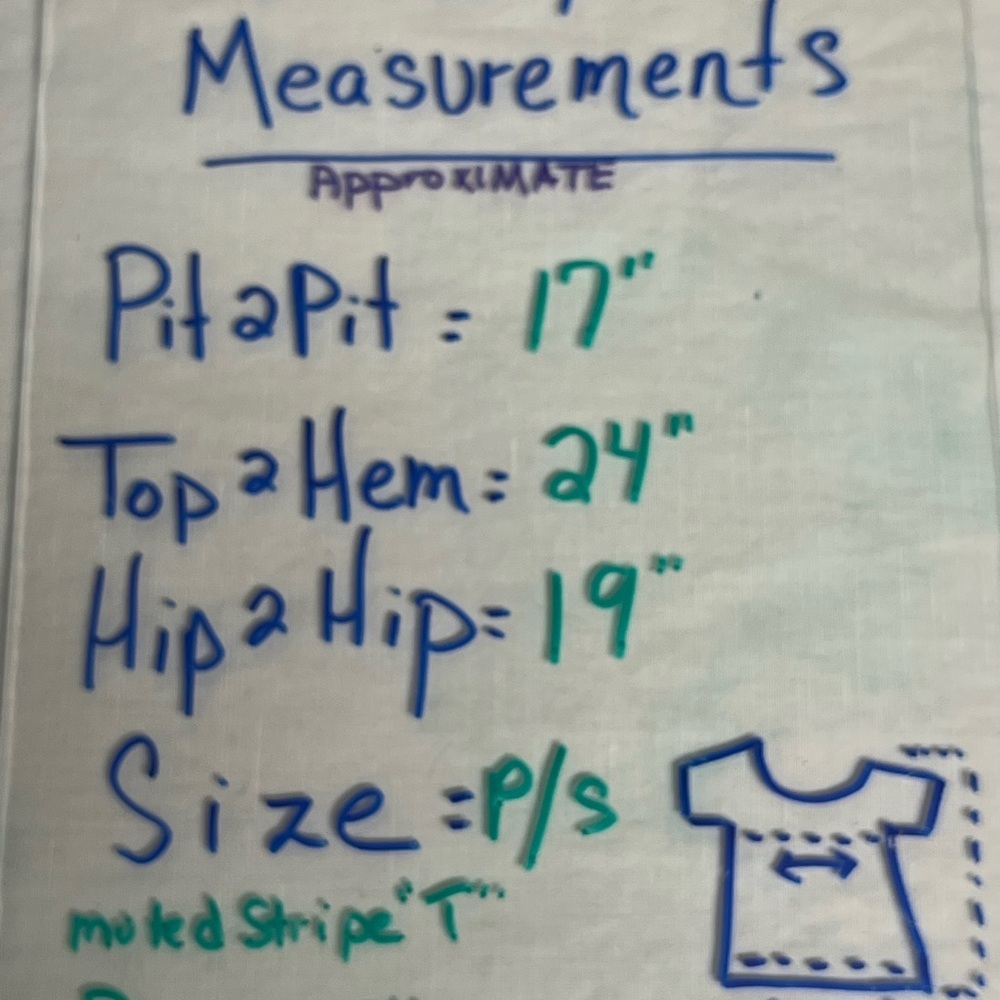 Measurements
ApproxIMATE
Pit2Pit = 17"
Top2Hem= 24"
Hip2Hip= 19"
Size =P/S
muted Stripe "T"